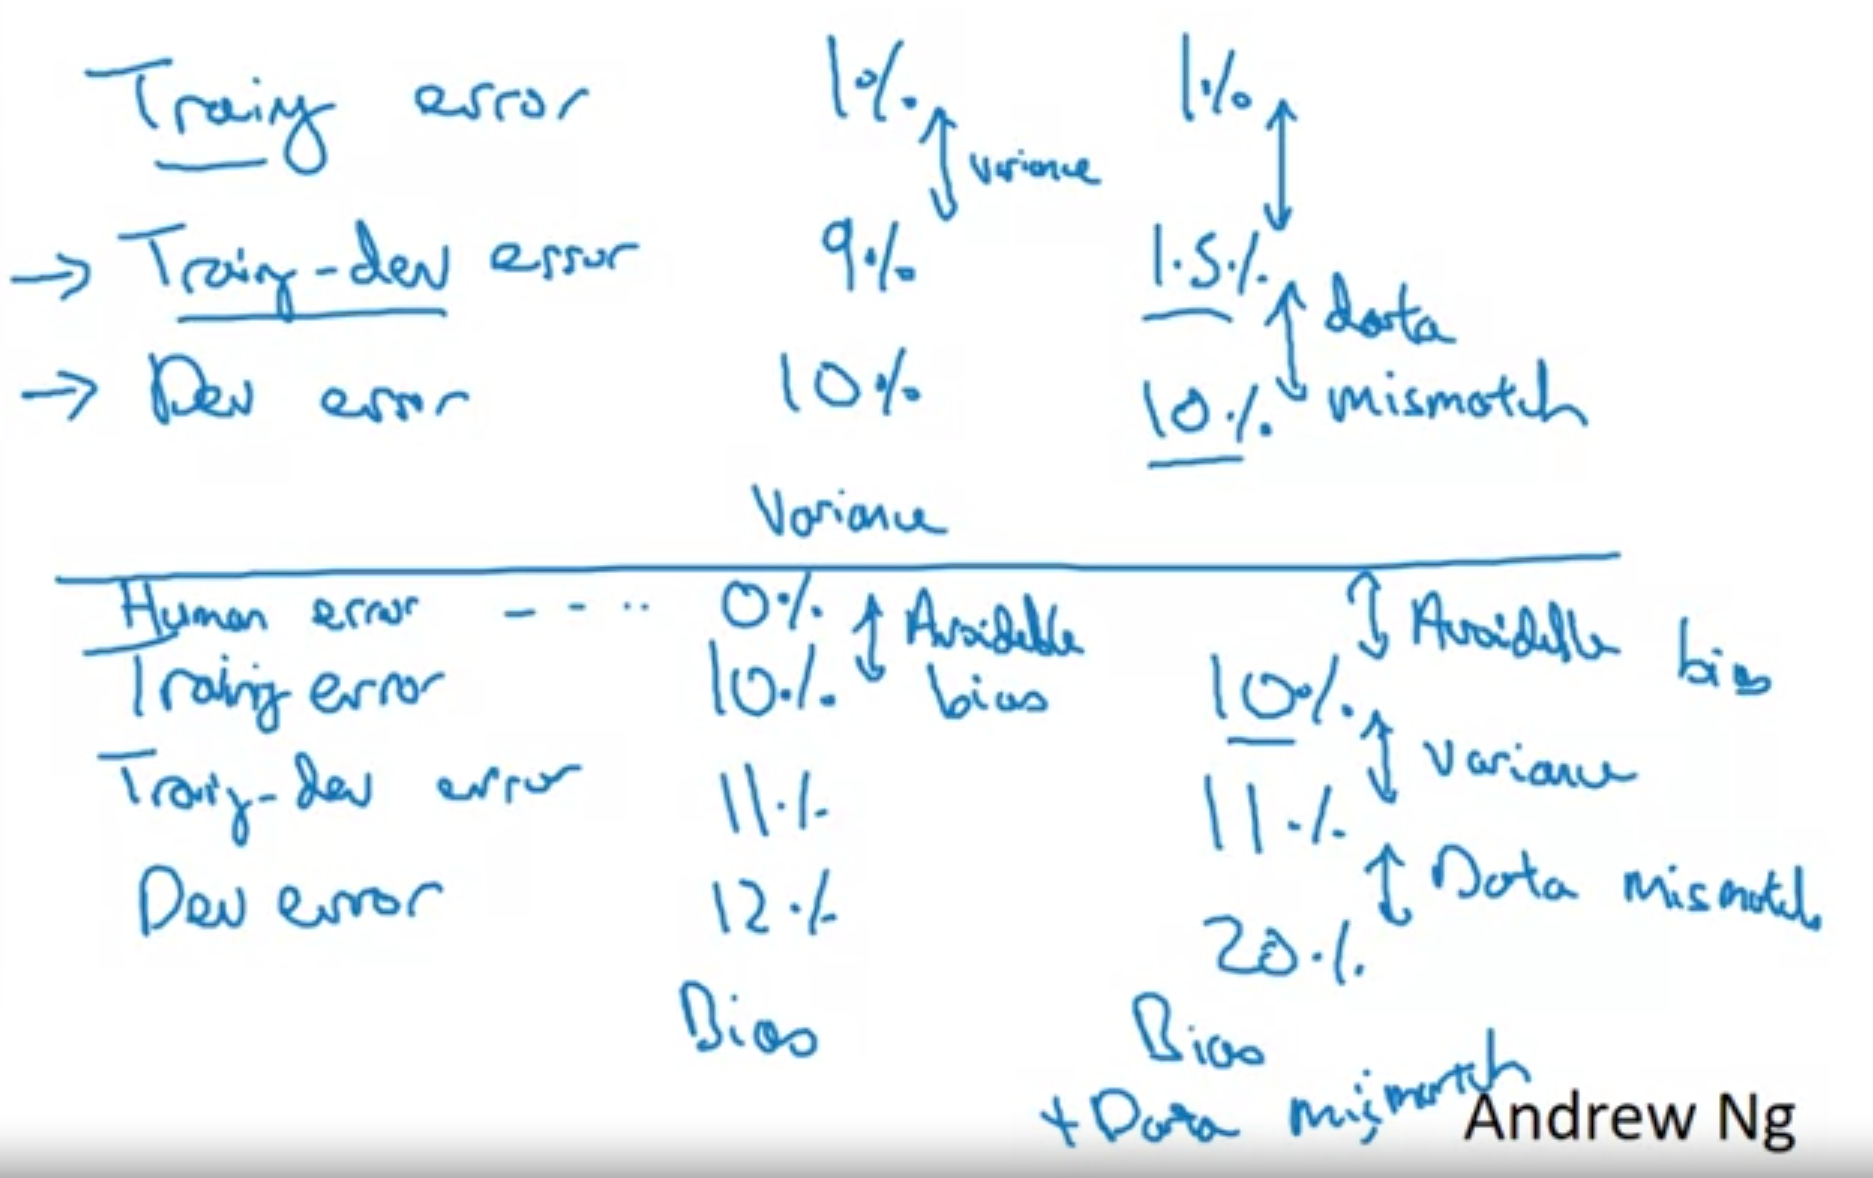 Training error 1% 1%
variance
→ Training-dev error 9% 1.5%
data
→ Dev error 10% 10% mismatch
Variance
Human error - - .. 0% Avoidable Avoidable bias
Training error 10% bias 10%
Variance
Training-dev error 11% 11%
Data mismatch
Dev error 12% 20%
Bias Bias
+ Data mismatch
Andrew Ng